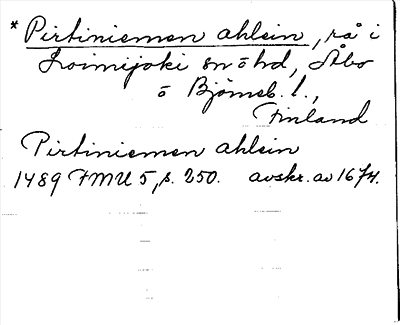 * Pirtiniemen ahlein, rå i
Loimijoki sn o hd, Åbo
o Björneb. l.,
Finland
Pirtiniemen ahlein
1489 FMU 5, s. 250. avskr. av 1674.